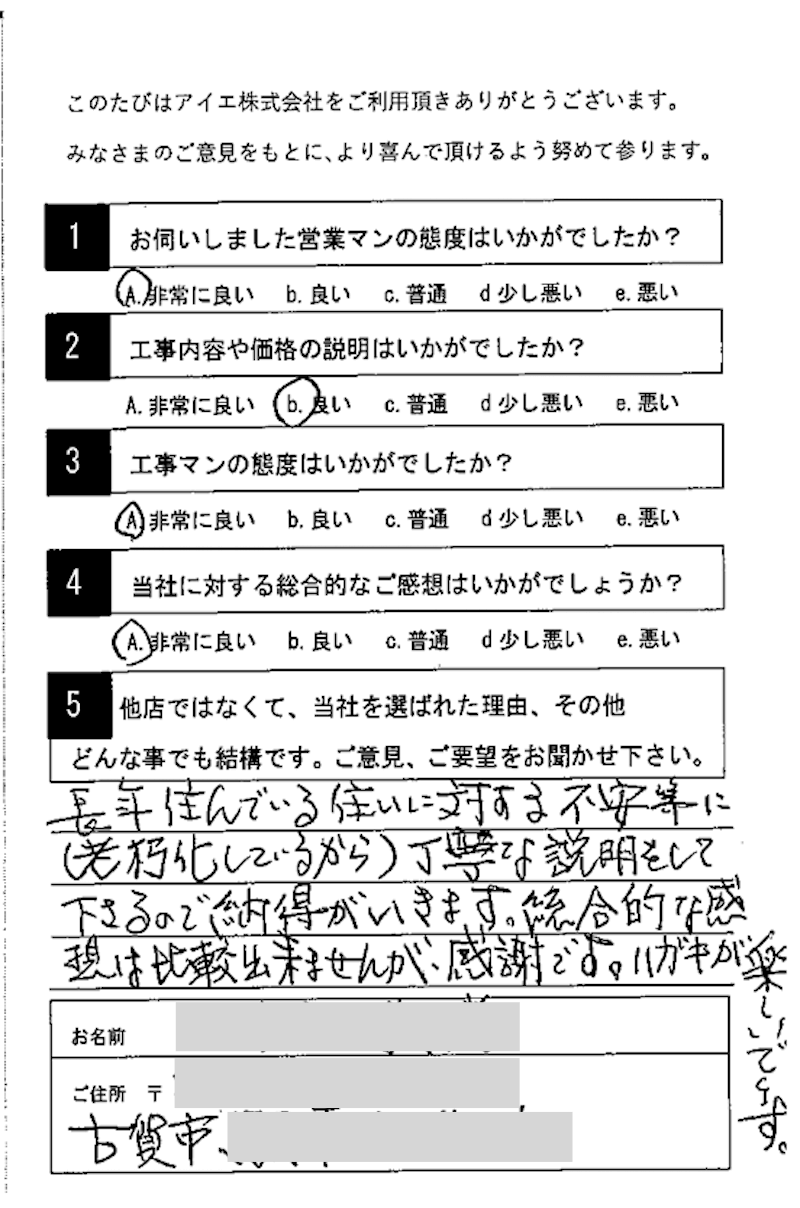 このたびはアイエ株式会社をご利用頂きありがとうございます。
みなさまのご意見をもとに、より喜んで頂けるよう努めて参ります。
1 お伺いしました営業マンの態度はいかがでしたか？
A. 非常に良い b. 良い c. 普通 d 少し悪い e. 悪い
2 工事内容や価格の説明はいかがでしたか？
A. 非常に良い b. 良い c. 普通 d 少し悪い e. 悪い
3 工事マンの態度はいかがでしたか？
A 非常に良い b. 良い c. 普通 d 少し悪い e. 悪い
4 当社に対する総合的なご感想はいかがでしょうか？
A. 非常に良い b. 良い c. 普通 d 少し悪い e. 悪い
5 他店ではなくて、当社を選ばれた理由、その他
どんな事でも結構です。ご意見、ご要望をお聞かせ下さい。
長年住んでいる住いに対する不安等に
(老朽化しているから)丁寧な説明をして
下さるので納得がいきます。総合的な感
想は比較出来ませんが、感謝です。ハガキが
楽しいです。
お名前
ご住所 〒
古賀市